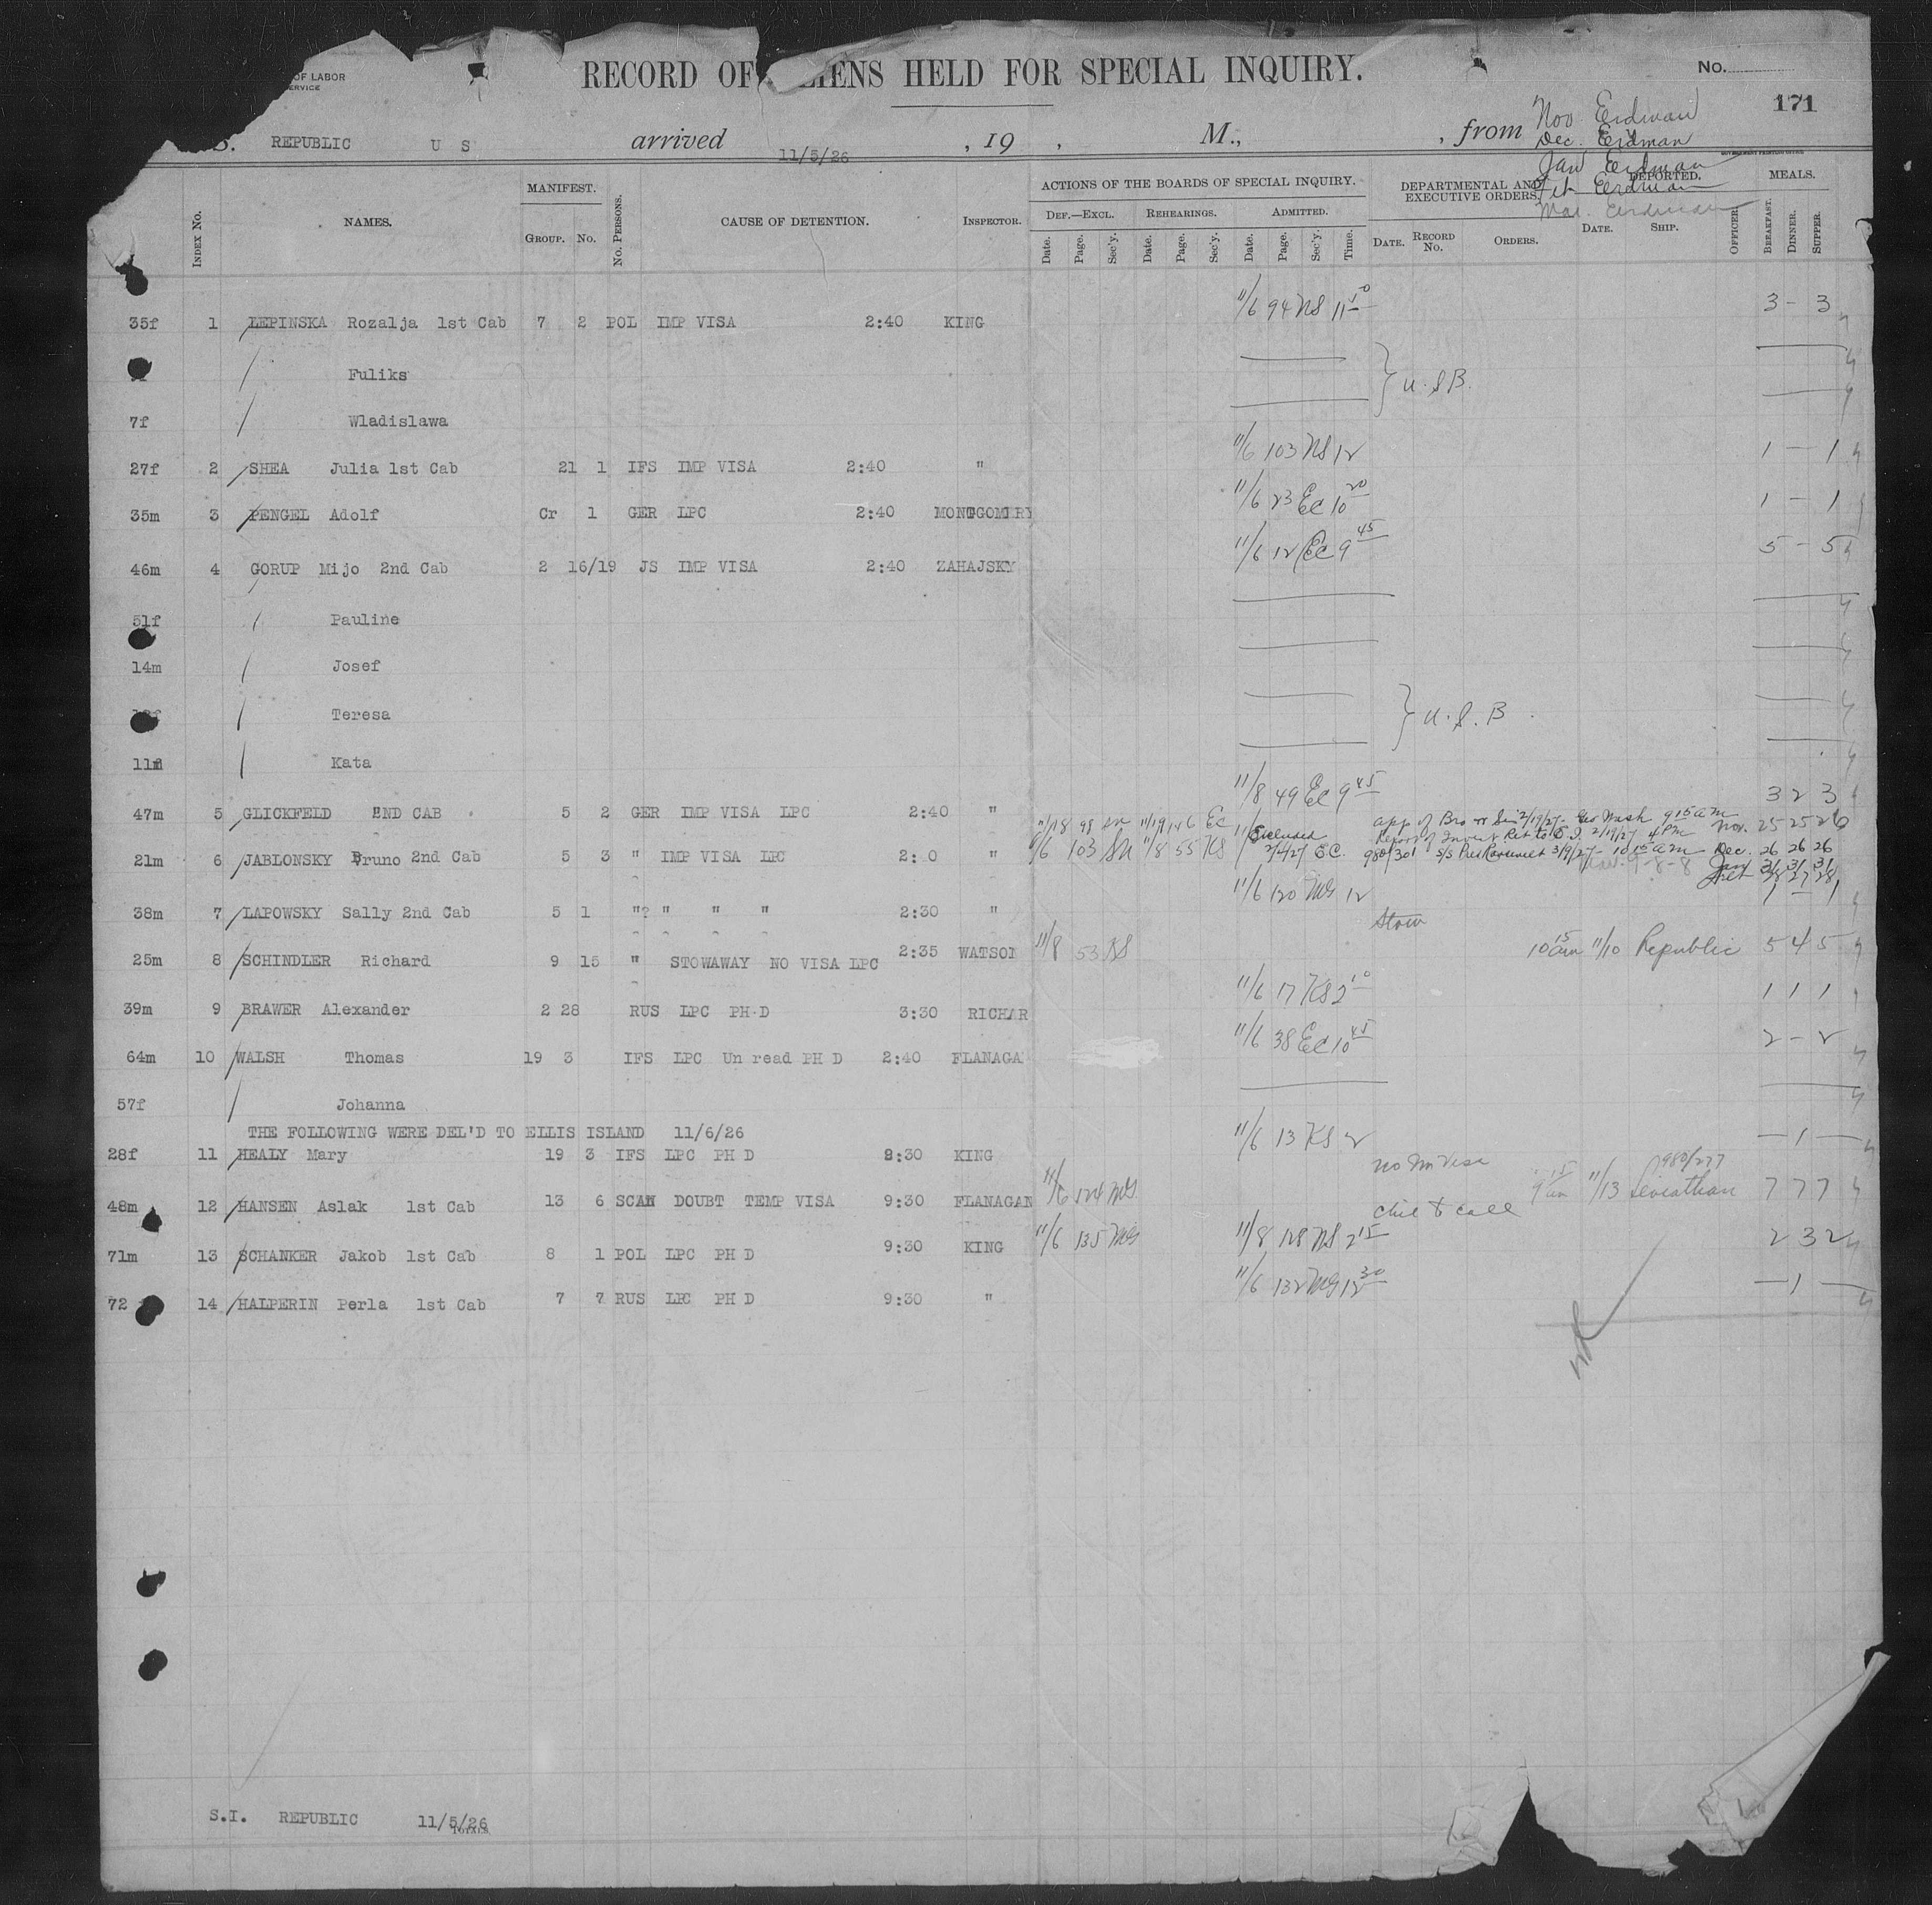 OF LABOR
ERVICE
RECORD OF ALIENS HELD FOR SPECIAL INQUIRY.
No.
171
S. REPUBLIC U S arrived 11/5/26 , 19 , M., , from
Nov. Erdman
Dec. Erdman
Jan Erdman
Feb Erdman
Mar. Erdman
GOVERNMENT PRINTING OFFICE
INDEX No. NAMES. MANIFEST. GROUP. No. No. PERSONS. CAUSE OF DETENTION. INSPECTOR. ACTIONS OF THE BOARDS OF SPECIAL INQUIRY. DEF.—EXCL. Date. Page. Sec'y. REHEARINGS. Date. Page. Sec'y. ADMITTED. Date. Page. Sec'y. Time. DEPARTMENTAL AND EXECUTIVE ORDERS. DATE. RECORD No. ORDERS. DEPORTED. DATE. SHIP. OFFICER. MEALS. BREAKFAST. DINNER. SUPPER.
35f 1 LEPINSKA Rozalja 1st Cab 7 2 POL IMP VISA 2:40 KING 11/6 94 NS 11 3 - 3
Fuliks } U.S.B.
7f Wladislawa
27f 2 SHEA Julia 1st Cab 21 1 IFS IMP VISA 2:40 " 11/6 103 NS 12 1 - 1
35m 3 PENGEL Adolf Cr 1 GER LPC 2:40 MONTGOMERY 11/6 23 EC 10 20 1 - 1
46m 4 GORUP Mijo 2nd Cab 2 16/19 JS IMP VISA 2:40 ZAHAJSKY 11/6 12 EC 9 45 5 - 5
51f Pauline
14m Josef
Teresa } U.S.B.
11f Kata
47m 5 GLICKFELD 2ND CAB 5 2 GER IMP VISA LPC 2:40 " 11/8 49 EC 9 45 3 2 3
11/18 98 11/19 146 EC Excluded app of Bro 2/19/27 - Geo Wash 9 15 am Nov. 25 25 26
21m 6 JABLONSKY Bruno 2nd Cab 5 3 " IMP VISA LPC 2: 0 " 11/6 103 SN 11/8 55 KS 2/4/27 E.C. 980/301 Ret to E.I. 2/19/27 4 PM S/S Pres Roosevelt 3/9/27 - 10 15 am Dec. 26 26 26
Mar. 9-8-8 Jan 31 31 31
Feb 28 27 28
38m 7 LAPOWSKY Sally 2nd Cab 5 1 "? " " " 2:30 " 11/6 120 MG 12 1 - 1
Stow
25m 8 SCHINDLER Richard 9 15 " STOWAWAY NO VISA LPC 2:35 WATSON 11/8 53 KS 10 15 am 11/10 Republic 5 4 5
39m 9 BRAWER Alexander 2 28 RUS LPC PH D 3:30 RICHAR 11/6 17 KS 2 10 1 1 1
64m 10 WALSH Thomas 19 3 IFS LPC Un read PH D 2:40 FLANAGA 11/6 38 EC 10 45 2 - 2
57f Johanna
THE FOLLOWING WERE DEL'D TO ELLIS ISLAND 11/6/26
28f 11 HEALY Mary 19 3 IFS LPC PH D 8:30 KING 11/6 13 KS 2 - 1 -
no Im Visa 980/277
48m 12 HANSEN Aslak 1st Cab 13 6 SCAN DOUBT TEMP VISA 9:30 FLANAGAN 11/6 124 MG 9 15 am 11/13 Leviathan 7 7 7
to call
71m 13 SCHANKER Jakob 1st Cab 8 1 POL LPC PH D 9:30 KING 11/6 135 MG 11/8 128 NS 2 15 2 3 2
72 14 HALPERIN Perla 1st Cab 7 7 RUS LPC PH D 9:30 " 11/6 132 MG 12 30 - 1 -
S.I. REPUBLIC 11/5/26
TOTALS.